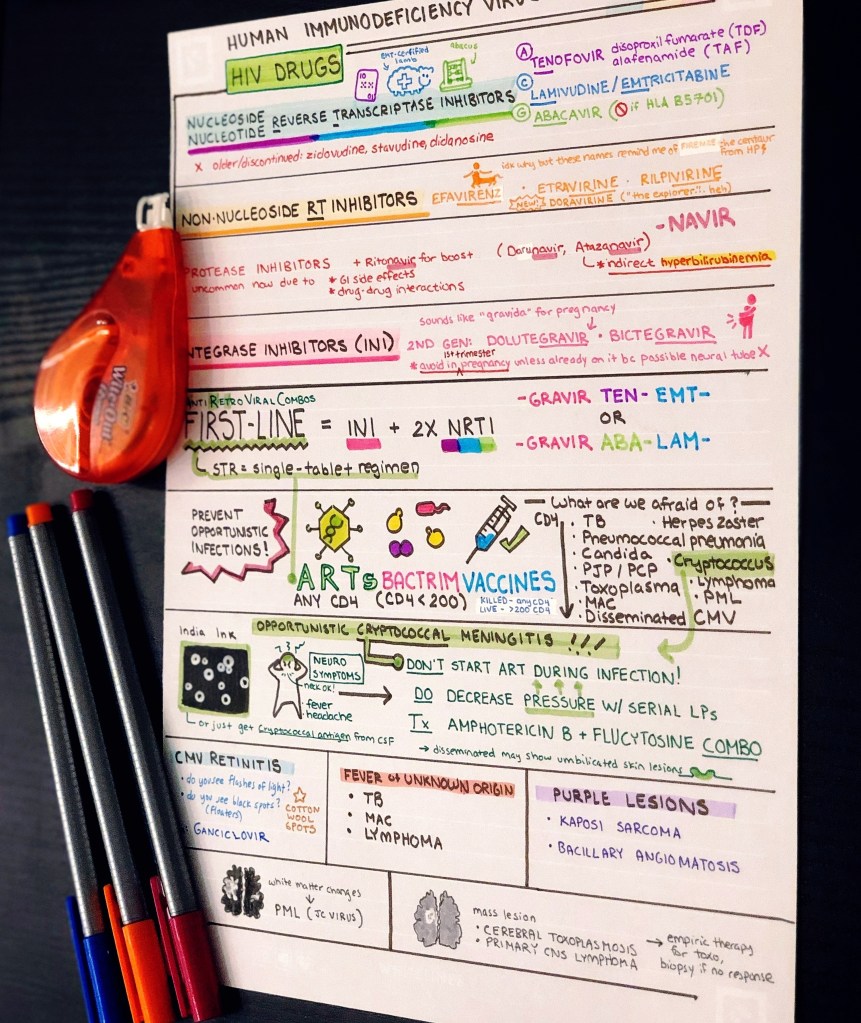 HUMAN IMMUNODEFICIENCY VIRUS
HIV DRUGS
EMT-certified
lamb
abacus
NUCLEOSIDE
NUCLEOTIDE REVERSE TRANSCRIPTASE INHIBITORS
A TENOFOVIR disoproxil fumarate (TDF)
alafenamide (TAF)
C LAMIVUDINE/EMTRICITABINE
G ABACAVIR (if HLA B5701)
X older/discontinued: zidovudine, stavudine, didanosine
NON-NUCLEOSIDE RT INHIBITORS
idk why but these names remind me of FIRENZE the centaur
from HP
EFAVIRENZ • ETRAVIRINE • RILPIVIRINE
NEW! DORAVIRINE ("the explorer".. heh)
PROTEASE INHIBITORS
uncommon now due to
+ Ritonavir for boost
* GI side effects
* drug-drug interactions
(Darunavir, Atazanavir)
* indirect hyperbilirubinemia
-NAVIR
INTEGRASE INHIBITORS (INI)
sounds like "gravida" for pregnancy
2ND GEN: DOLUTEGRAVIR • BICTEGRAVIR
1st trimester
* avoid in pregnancy unless already on it bc possible neural tube X
ANTI RETROVIRAL COMBOS
FIRST-LINE = INI + 2X NRTI
STR = single-tablet regimen
-GRAVIR TEN- EMT-
OR
-GRAVIR ABA- LAM-
PREVENT
OPPORTUNISTIC
INFECTIONS!
ARTs BACTRIM VACCINES
ANY CD4 (CD4<200) KILLED - any CD4
LIVE - >200 CD4
What are we afraid of?
CD4
• TB • Herpes Zoster
• Pneumococcal pneumonia
• Candida • Cryptococcus
• PJP/PCP • Lymphoma
• Toxoplasma • PML
• MAC
• Disseminated CMV
OPPORTUNISTIC CRYPTOCOCCAL MENINGITIS !!!
India Ink
NEURO
SYMPTOMS
neck ok!
• fever
• headache
or just get Cryptococcal antigen from CSF
DON'T START ART DURING INFECTION!
DO DECREASE PRESSURE W/ SERIAL LPs
Tx AMPHOTERICIN B + FLUCYTOSINE COMBO
→ disseminated may show umbilicated skin lesions
CMV RETINITIS
• do you see flashes of light?
• do you see black spots?
(floaters)
COTTON
WOOL
SPOTS
: GANCICLOVIR
FEVER of UNKNOWN ORIGIN
• TB
• MAC
• LYMPHOMA
PURPLE LESIONS
• KAPOSI SARCOMA
• BACILLARY ANGIOMATOSIS
white matter changes
↓
PML (JC VIRUS)
mass lesion
• CEREBRAL TOXOPLASMOSIS
• PRIMARY CNS LYMPHOMA
→ empiric therapy
for toxo,
biopsy if no response
Wite-Out